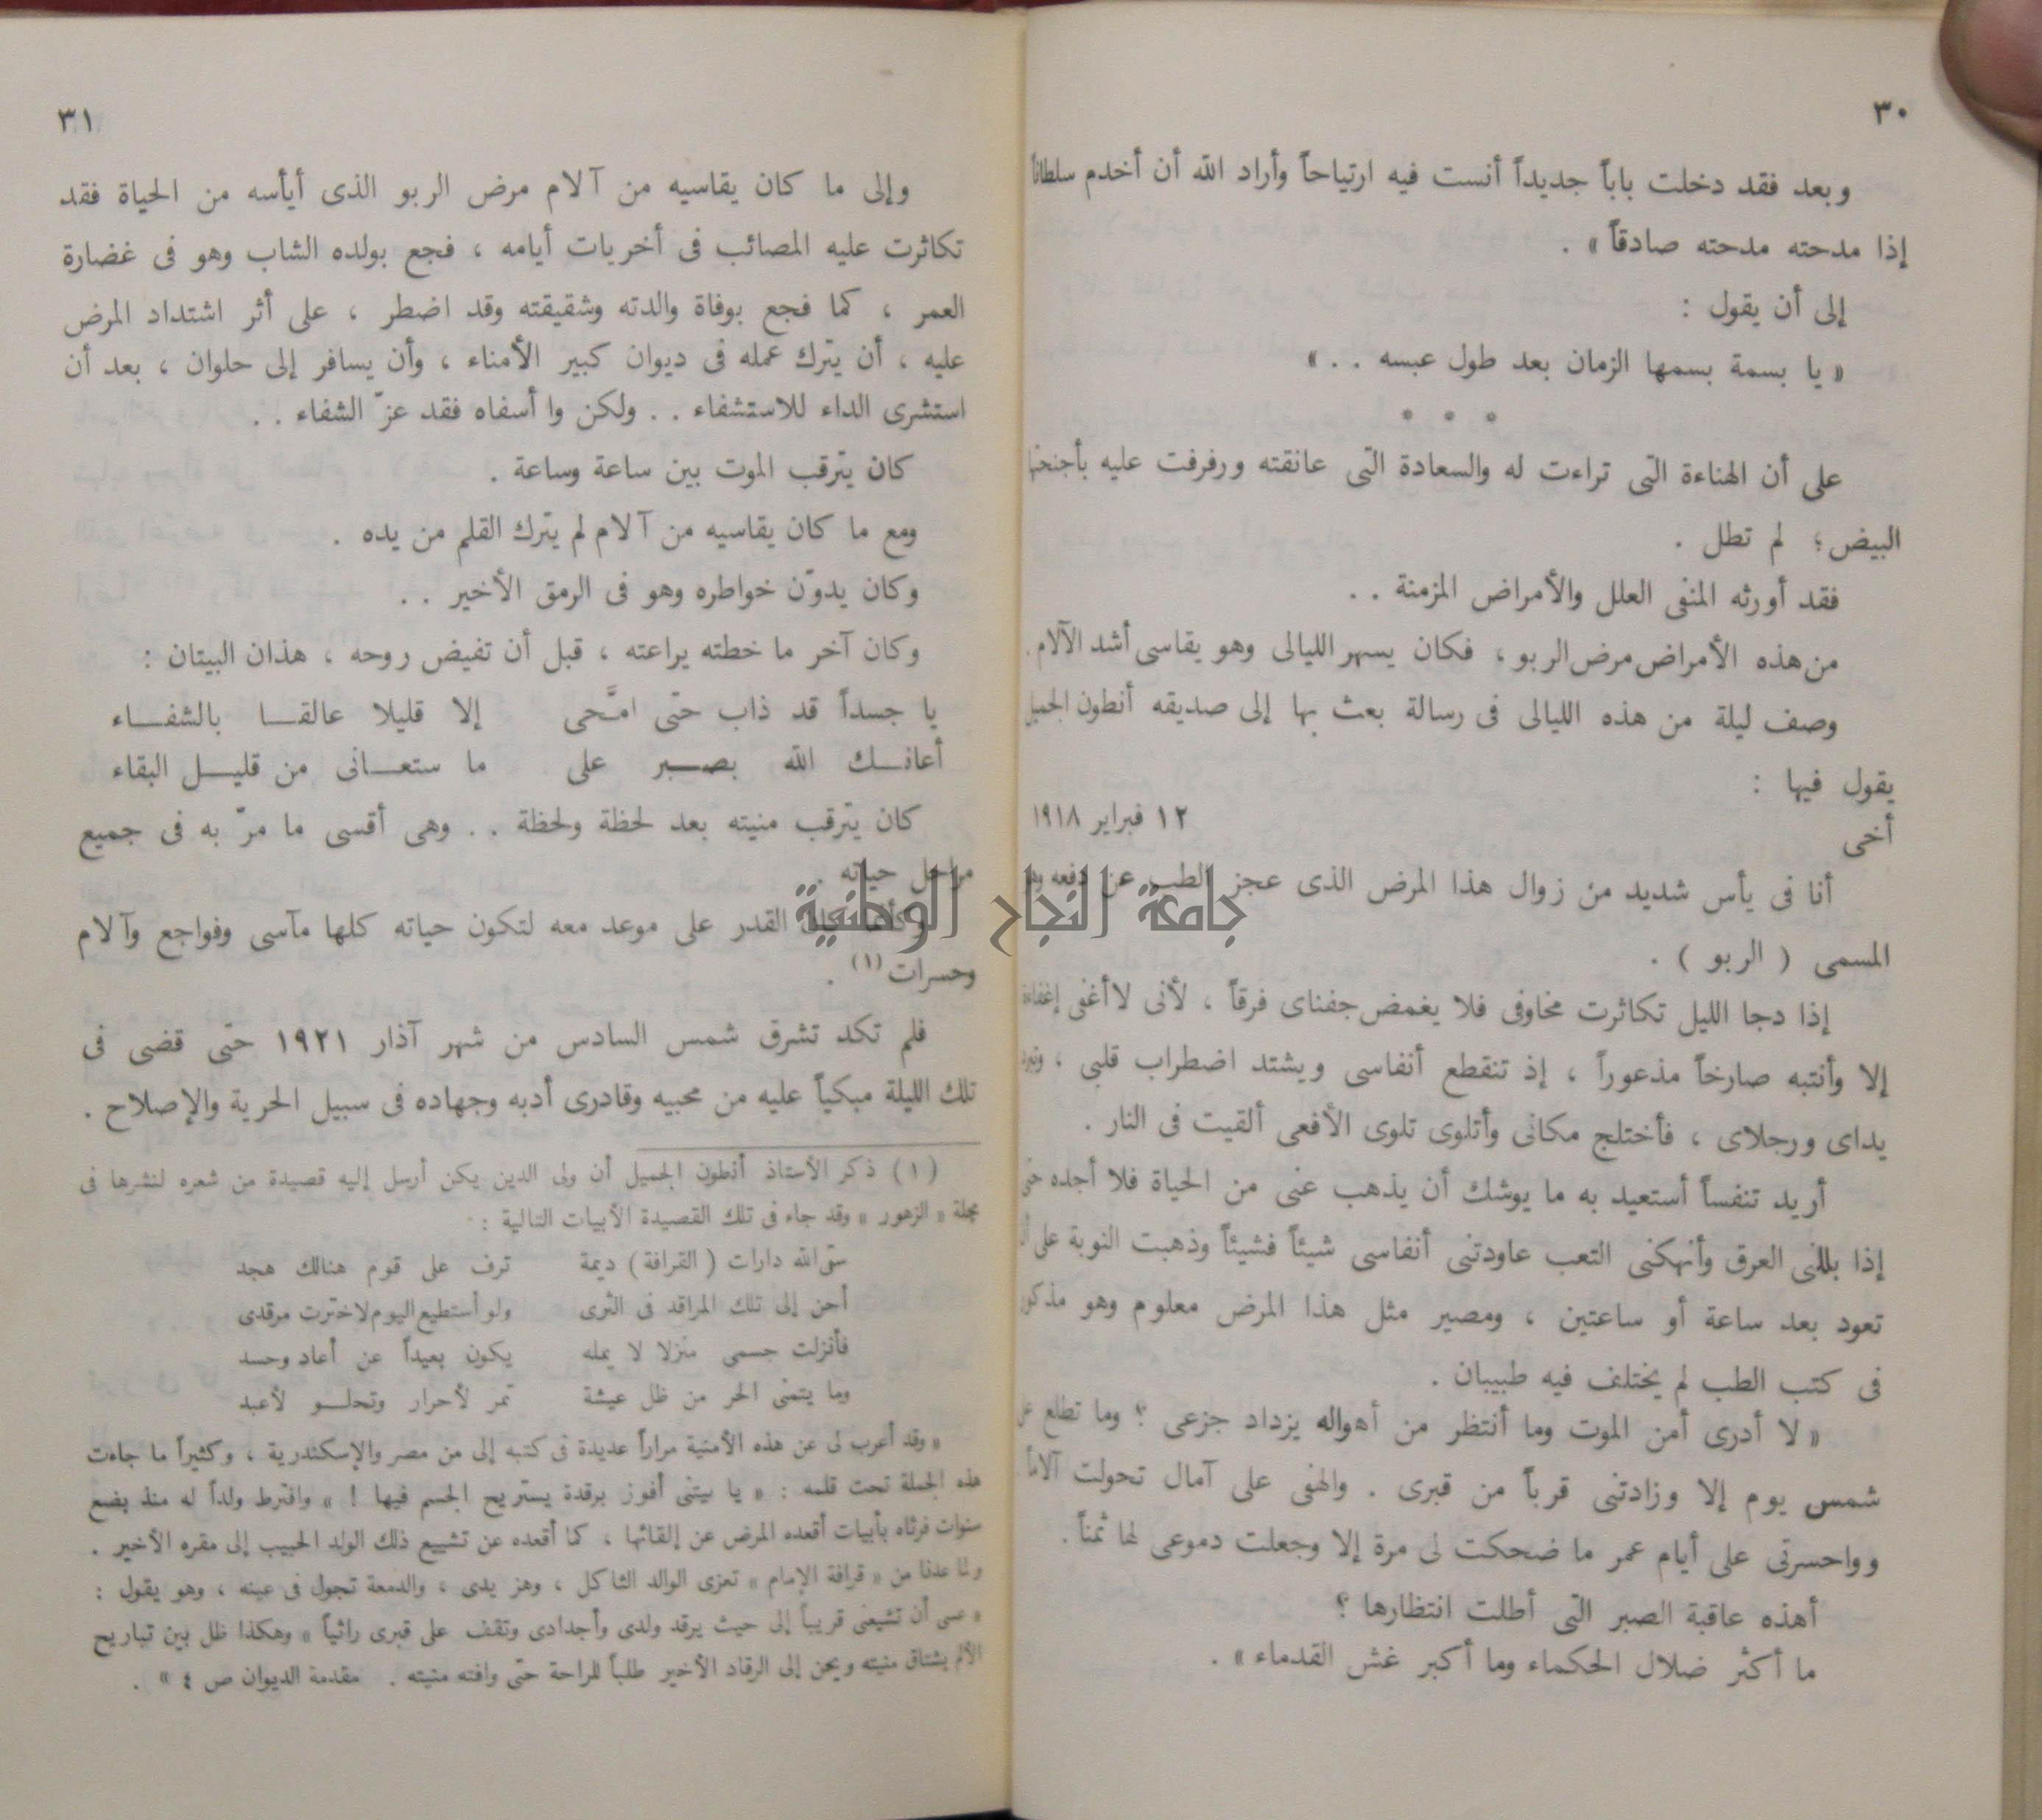 ٣٠
وبعد فقد دخلت باباً جديداً أنست فيه ارتياحاً وأراد الله أن أخدم سلطاناً
إذا مدحته مدحته صادقاً » .
إلى أن يقول :
« يا بسمة بسمها الزمان بعد طول عبسه . . »
* * *
على أن الهناءة التى تراءت له والسعادة التى عانقته ورفرفت عليه بأجنحتها
البيض ؛ لم تطل .
فقد أورثه المنفى العلل والأمراض المزمنة . .
من هذه الأمراض مرض الربو ، فكان يسهر الليالى وهو يقاسى أشد الآلام .
وصف ليلة من هذه الليالى فى رسالة بعث بها إلى صديقه أنطون الجميل
يقول فيها :
١٢ فبراير ١٩١٨
أخى
أنا فى يأس شديد من زوال هذا المرض الذى عجز الطب عن دفعه
المسمى ( الربو ) .
إذا دجا الليل تكاثرت مخاوفى فلا يغمض جفناى فرقاً ، لأنى لا أغفى إغفاءة
إلا وأنتبه صارخاً مذعوراً ، إذ تنقطع أنفاسى ويشتد اضطراب قلبى ،
يداى ورجلاى ، فأختلج مكانى وأتلوى تلوى الأفعى ألقيت فى النار .
أريد تنفساً أستعيد به ما يوشك أن يذهب عنى من الحياة فلا أجده حتى
إذا بللنى العرق وأنهكنى التعب عاودتنى أنفاسى شيئاً فشيئاً وذهبت النوبة على
تعود بعد ساعة أو ساعتين ، ومصير مثل هذا المرض معلوم وهو مذكور
فى كتب الطب لم يختلف فيه طبيبان .
« لا أدرى أمن الموت وما أنتظر من أهواله يزداد جزعى ؟ وما تطلع
شمس يوم إلا وزادتنى قرباً من قبرى . والهفى على آمال تحولت آلاماً
وواحسرتى على أيام عمر ما ضحكت لى مرة إلا وجعلت دموعى لها ثمناً .
أهذه عاقبة الصبر التى أطلت انتظارها ؟
ما أكثر ضلال الحكماء وما أكبر غش القدماء » .
٣١
وإلى ما كان يقاسيه من آلام مرض الربو الذى أيأسه من الحياة فقد
تكاثرت عليه المصائب فى أخريات أيامه ، فجع بولده الشاب وهو فى غضارة
العمر ، كما فجع بوفاة والدته وشقيقته وقد اضطر ، على أثر اشتداد المرض
عليه ، أن يترك عمله فى ديوان كبير الأمناء ، وأن يسافر إلى حلوان ، بعد أن
استشرى الداء للاستشفاء . . ولكن وا أسفاه فقد عزّ الشفاء . .
كان يترقب الموت بين ساعة وساعة .
ومع ما كان يقاسيه من آلام لم يترك القلم من يده .
وكان يدوّن خواطره وهو فى الرمق الأخير . .
وكان آخر ما خطته يراعته ، قبل أن تفيض روحه ، هذان البيتان :
يا جسداً قد ذاب حتى امّحى إلا قليلا عالقا بالشفاء
أعانك الله بصبر على ما ستعانى من قليل البقاء
كان يترقب منيته بعد لحظة ولحظة . . وهى أقسى ما مرّ به فى جميع
مراحل حياته .
وكأنما كان القدر على موعد معه لتكون حياته كلها مآسى وفواجع وآلام
وحسرات (١) .
فلم تكد تشرق شمس السادس من شهر آذار ١٩٢١ حتى قضى فى
تلك الليلة مبكياً عليه من محبيه وقادرى أدبه وجهاده فى سبيل الحرية والإصلاح .
(١) ذكر الأستاذ أنطون الجميل أن ولى الدين يكن أرسل إليه قصيدة من شعره لنشرها فى
مجلة « الزهور » وقد جاء فى تلك القصيدة الأبيات التالية :
سقى الله دارات ( القرافة ) ديمة ترف على قوم هنالك هجد
أحن إلى تلك المراقد فى الثرى ولو أستطيع اليوم لاخترت مرقدى
فأنزلت جسمى منزلا لا يمله يكون بعيداً عن أعاد وحسد
وما يتمنى الحر من ظل عيشة تمر لأحرار وتحلو لأعبد
« وقد أعرب لى عن هذه الأمنية مراراً عديدة فى كتبه إلى من مصر والإسكندرية ، وكثيراً ما جاءت
هذه الجملة تحت قلمه : « يا ليتنى أفوز برقدة يستريح الجسم فيها ! » وافترط ولداً له منذ بضع
سنوات فرثاه بأبيات أقعده المرض عن إلقائها ، كما أقعده عن تشييع ذلك الولد الحبيب إلى مقره الأخير .
ولما عدنا من « قرافة الإمام » نعزى الوالد الثاكل ، وهز يدى ، والدمعة تجول فى عينه ، وهو يقول :
« عسى أن تشيعنى قريباً إلى حيث يرقد ولدى وأجدادى وتقف على قبرى راثياً » وهكذا ظل بين تباريح
الألم يشتاق منيته ويحن إلى الرقاد الأخير طلباً للراحة حتى وافته منيته . مقدمة الديوان ص ٤ » .
جامعة النجاح الوطنية